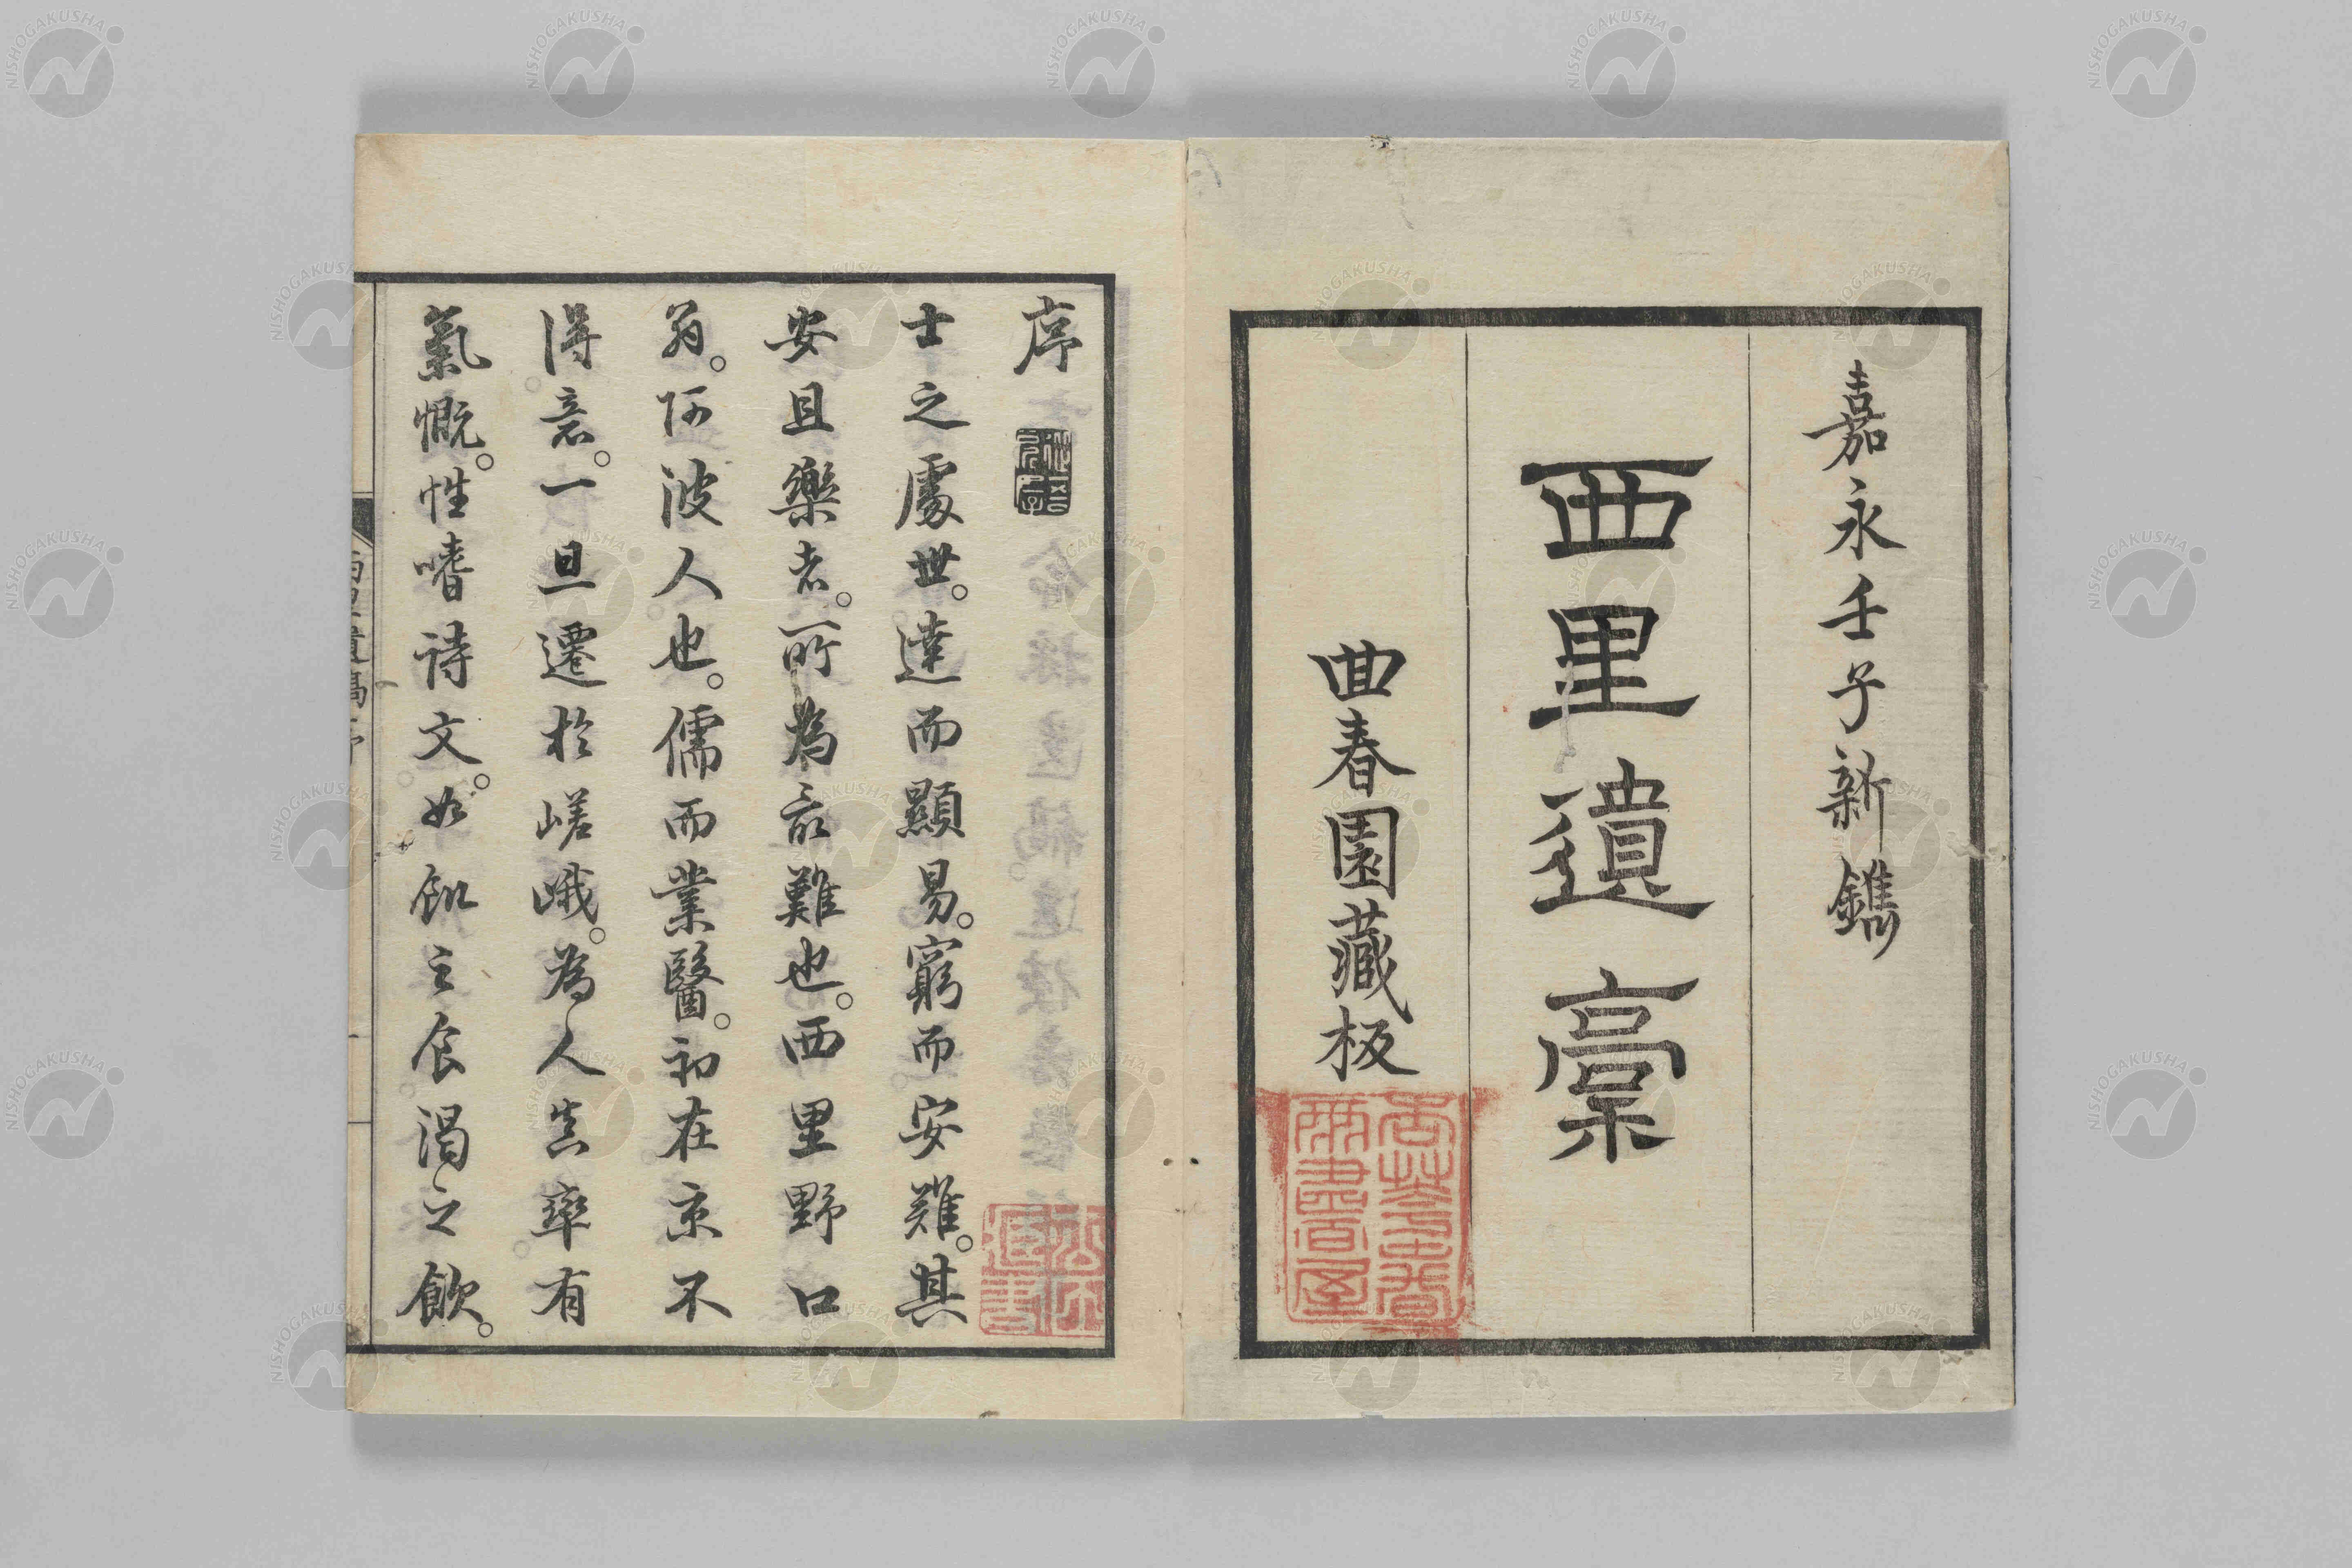 嘉永壬子新鐫
西里遺稾
曲春園藏板
序
士之處世。達而顯易。窮而安難。其
安且樂者。所為最難也。西里野口
翁。阿波人也。儒而業醫。初在京不
得意。一旦遷於嵯峨。為人真率有
氣慨。性嗜詩文。如飢之食渴之飲。
NISHOGAKUSHA